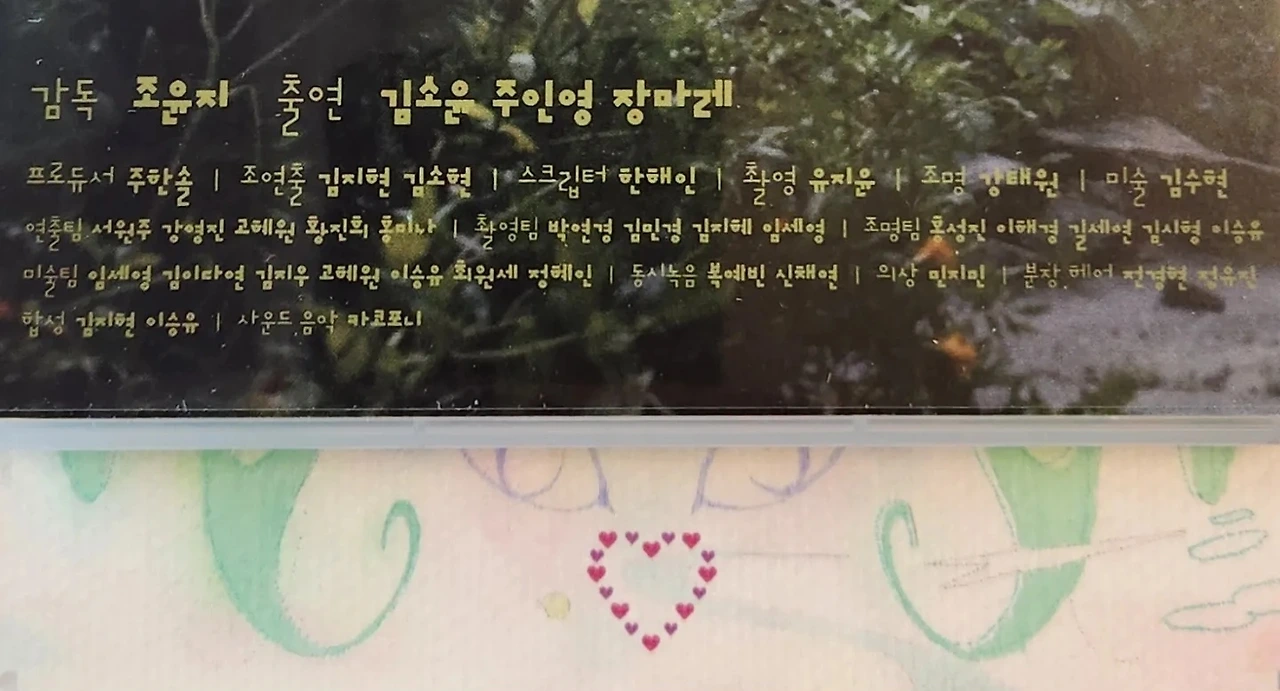 감독 조윤지 출연 김소윤 주인영 장마레
프로듀서 주한솔 | 조연출 김지현 김소현 | 스크립터 한해인 | 촬영 유지윤 | 조명 강태원 | 미술 김수현
연출팀 서원주 강영진 고혜원 황진회 홍미나 | 촬영팀 박연경 김민경 김지혜 임세영 | 조명팀 홍성진 이해경 길세연 김시형 이승유
미술팀 임세영 김이다연 김지우 고혜원 이승유 최원세 정혜인 | 동시녹음 복예빈 신채연 | 의상 민지민 | 분장·헤어 전경현 정유진
합성 김지현 이승유 | 사운드·음악 카코포니